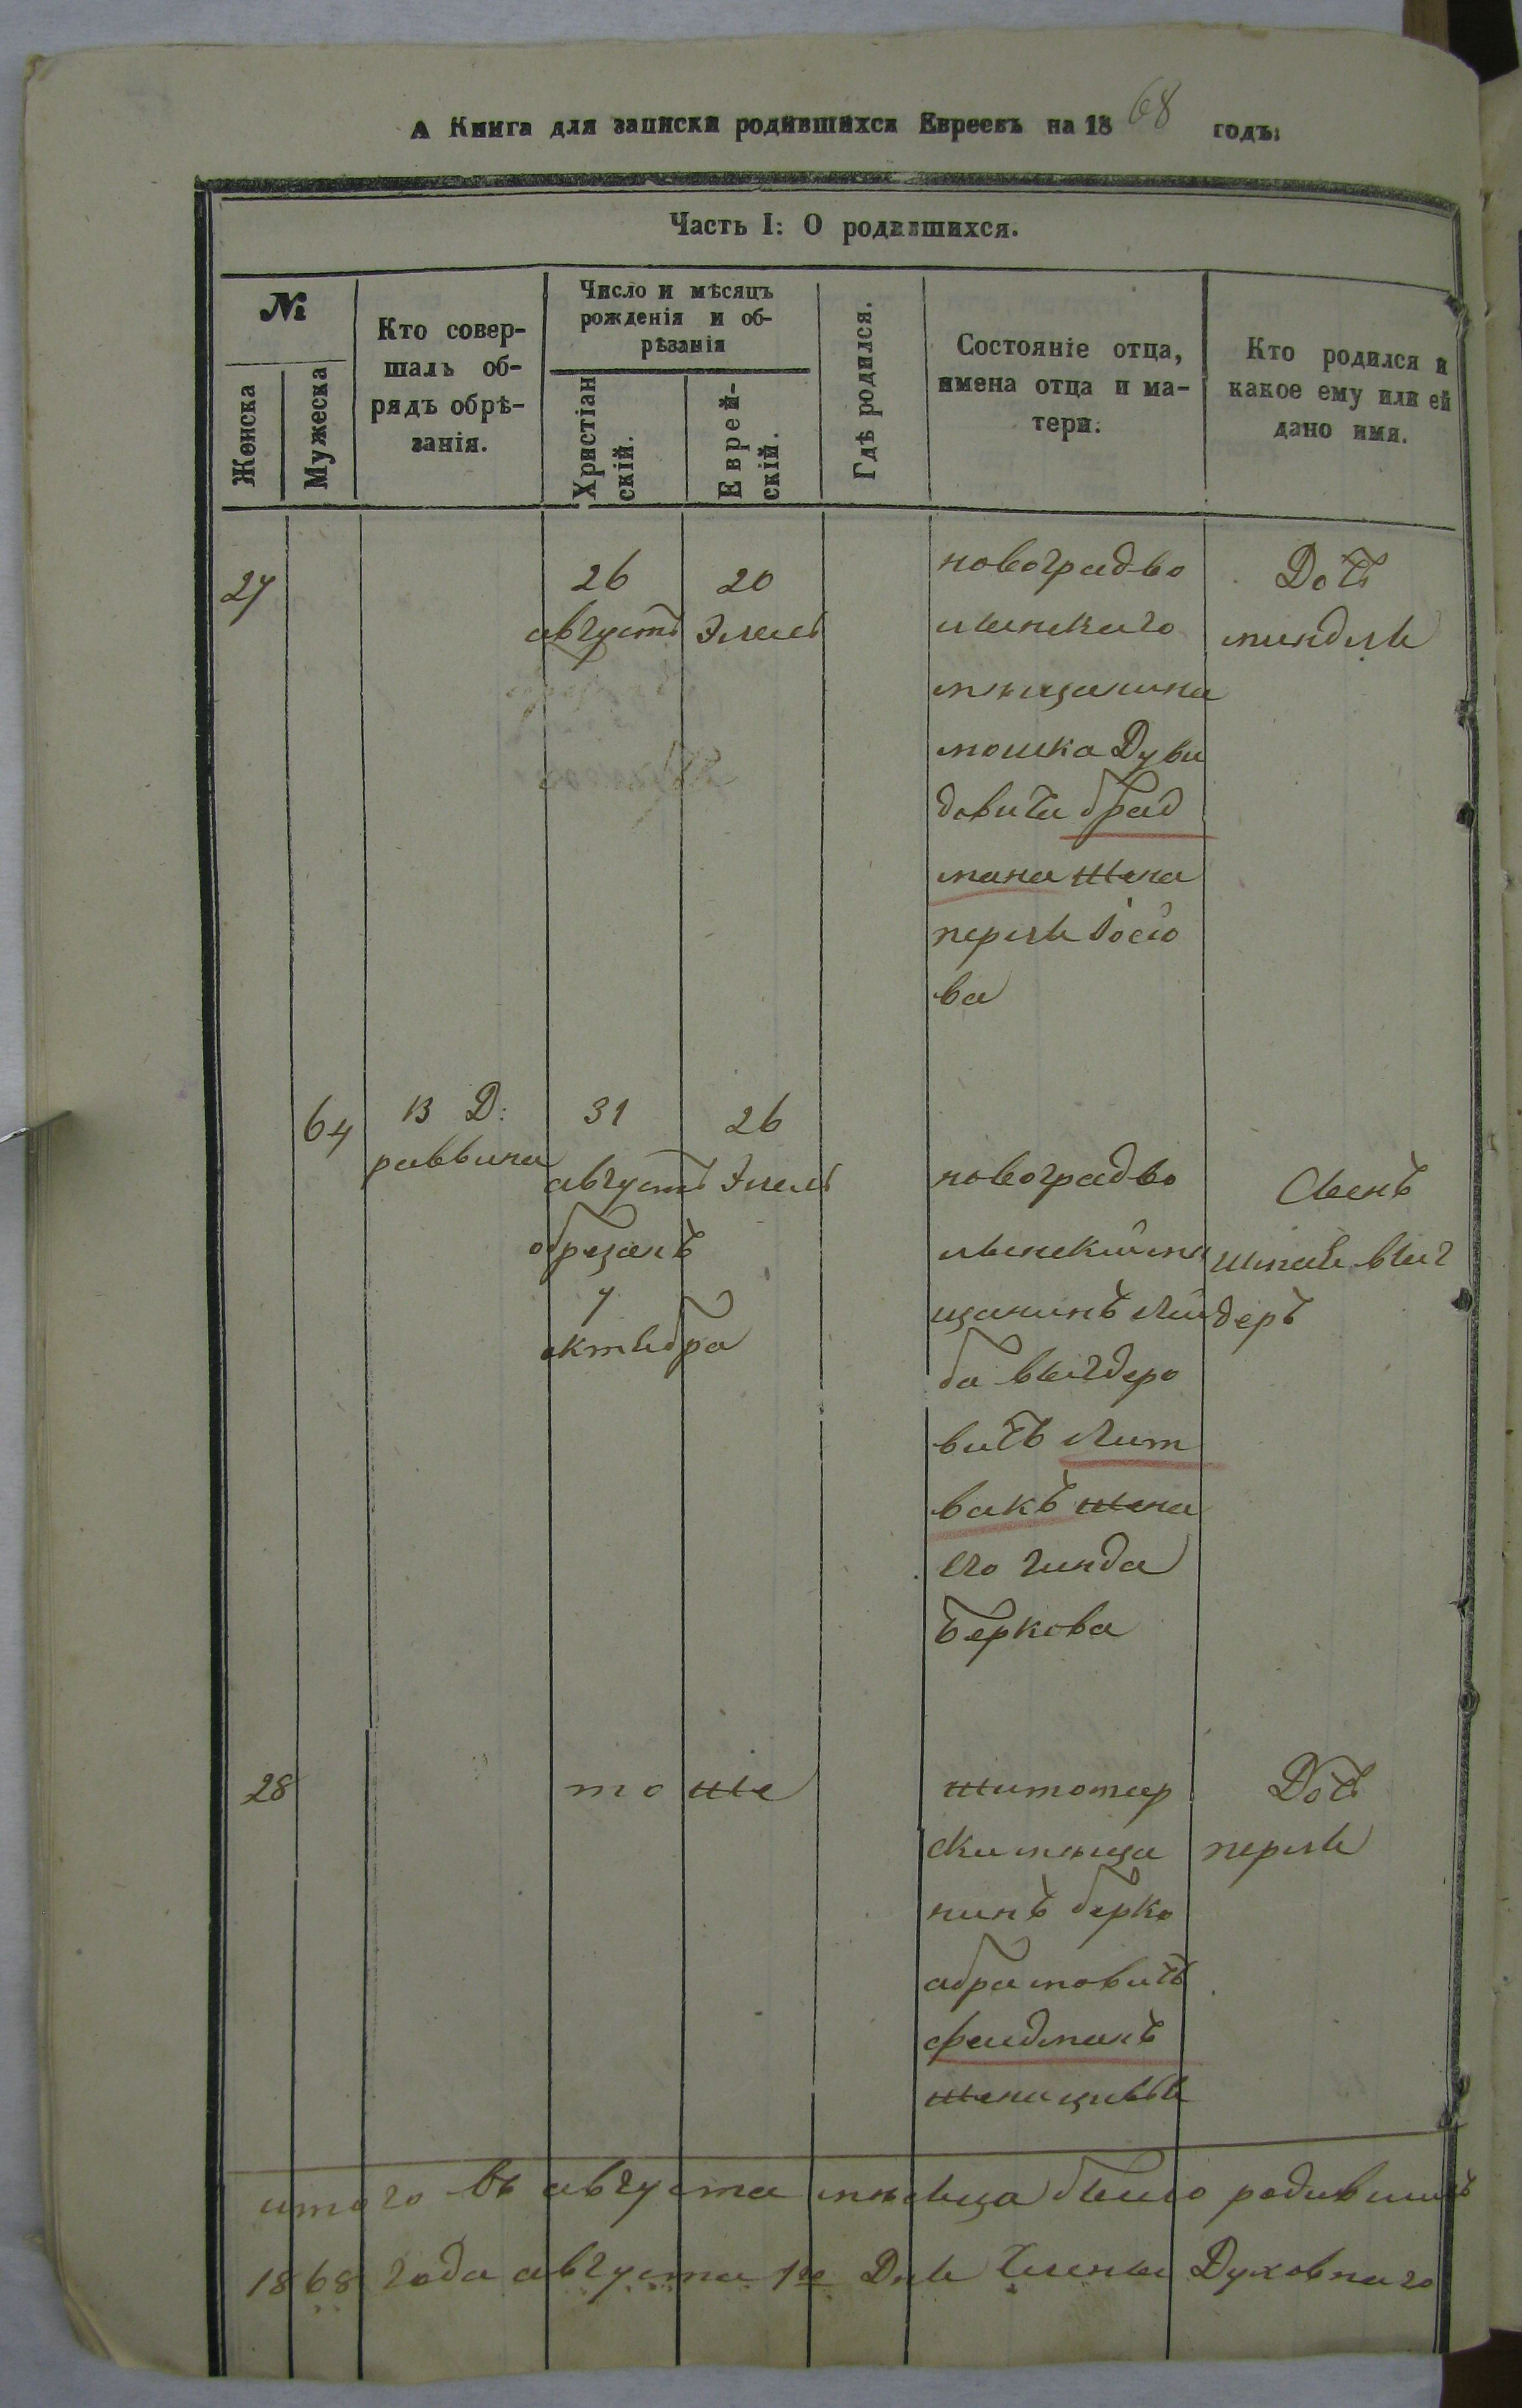 А Книга для записки родившихся Евреевъ на 1868 годъ:
Часть I: О родившихся.
№
Женска
Мужеска
Кто совер-
шалъ об-
рядъ обрѣ-
занія.
Число и мѣсяцъ
рожденія и об-
рѣзанія
Христіан
скій.
Еврей-
скій.
Гдѣ родился.
Состояніе отца,
имена отца и ма-
тери.
Кто родился и
какое ему или ей
дано имя.
27
26
августъ
20
Элелъ
новоградво
лынскаго
мѣщанина
мошка Дуви
довича брад
мана жена
перля Іосіо
ва
Дочь
миндля
64
В Д:
раввина
31
августъ
обрезанъ
7
октября
26
Элелъ
новоградво
лынскій мѣ
щанинъ лей
ба вылдеро
вичъ Лит
вакъ жена
его гинда
Беркова
Сынъ
деръ
28
тоже
житомир
ски мѣща
нинъ берко
абрамовичъ
фелдманъ
жена цивья
Дочь
перля
итого въ августа мѣсяца было родившихъ
1868 года августа Дня Члены Духовнаго